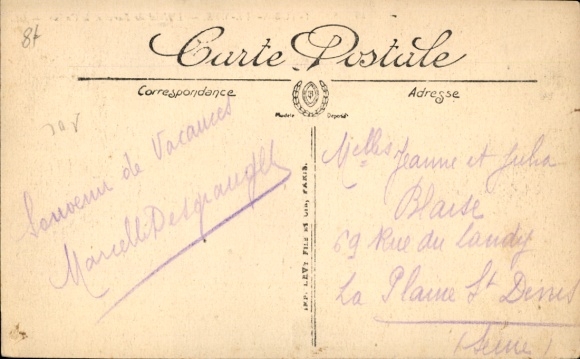 8f
Carte Postale
Correspondance
Adresse
Modèle Déposé
Souvenir de Vacances
Marcelle
Melles Jeanne et Julia
Blaise
69 Rue du Landy
La Plaine St Denis
(Seine)
IMP. LEVY FILS ET CIE, PARIS.